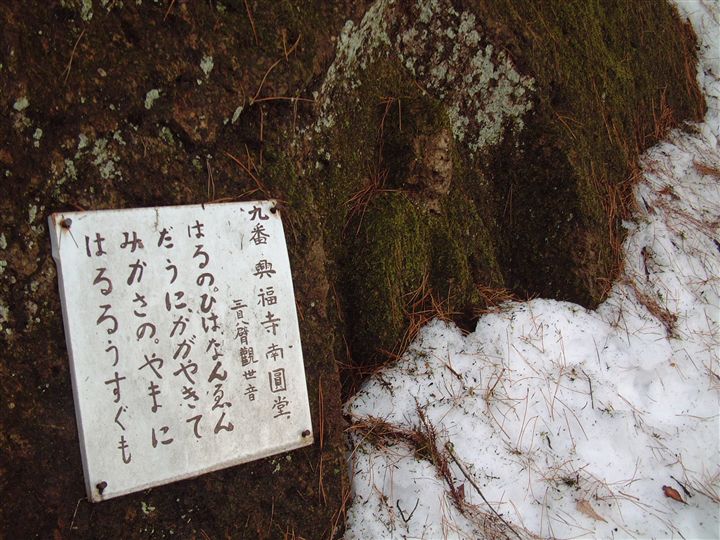 九番 興福寺南圓堂
三目八臂觀世音
はるの。ひはなんゑん
だうにかがやきて
みかさの。やまに
はるるうすぐも